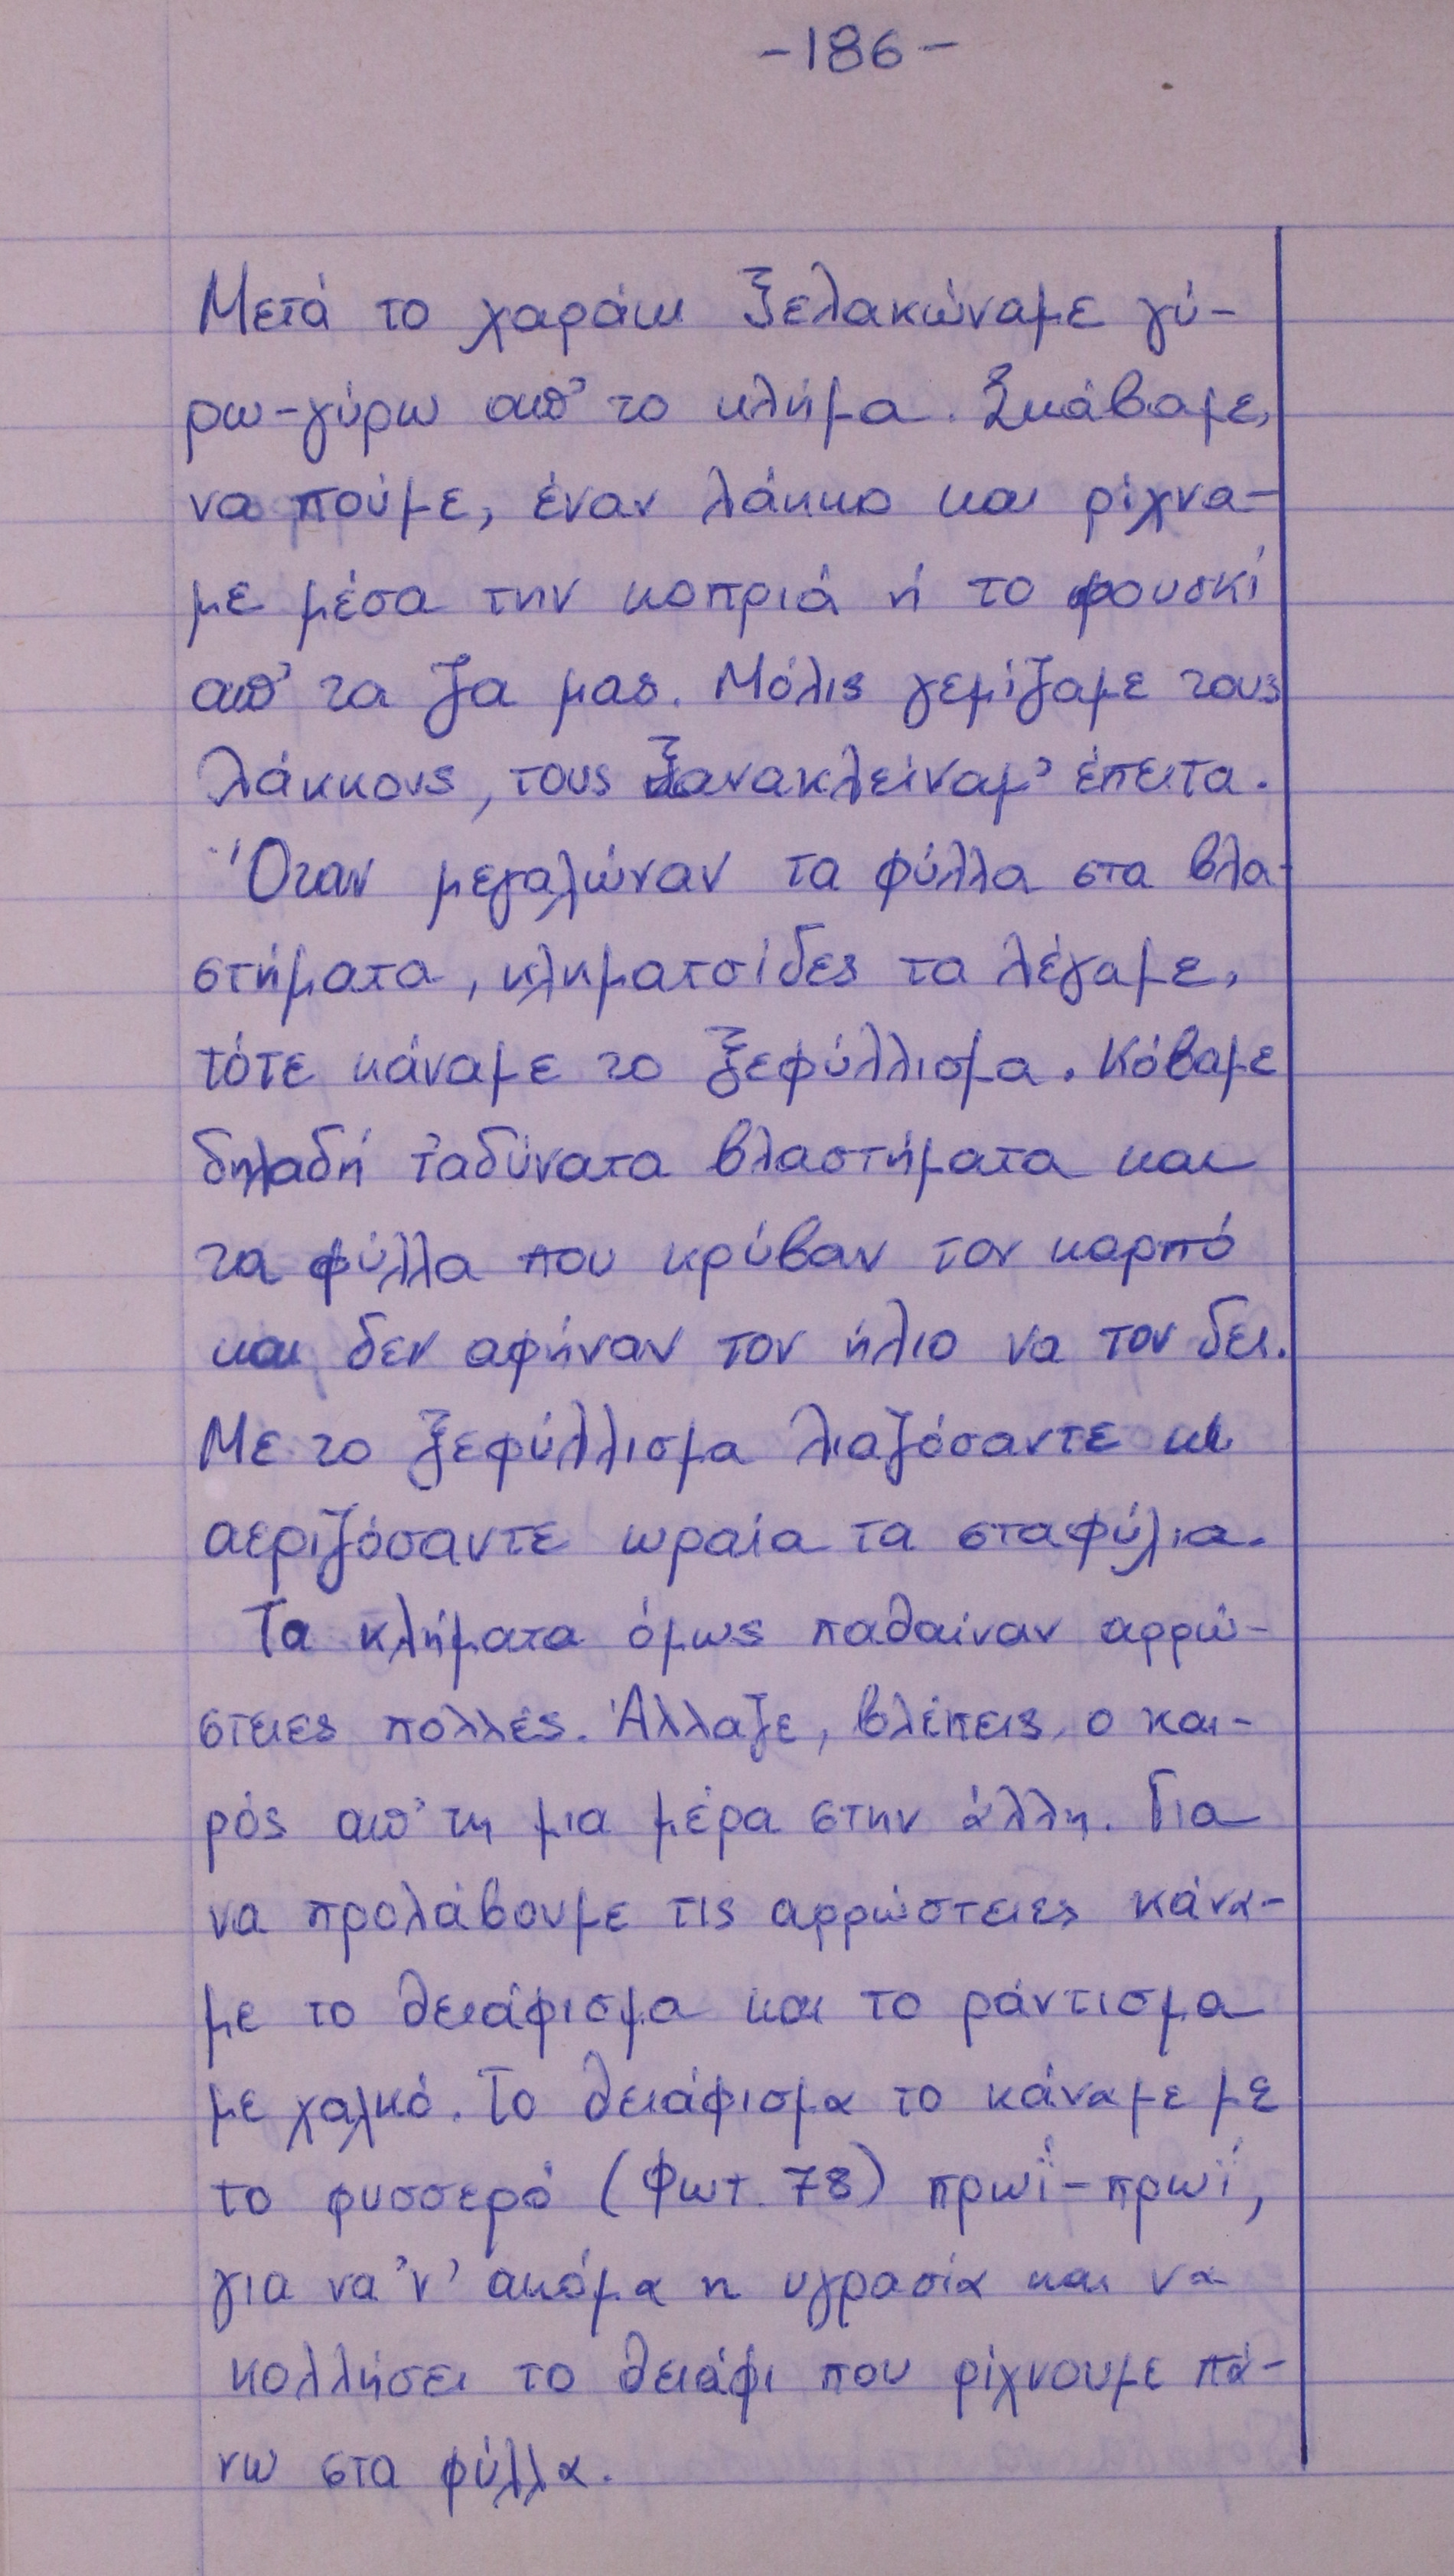 -186-
Μετά το χαράκι ξελακώναμε γύ-
ρω-γύρω απ' το κλήμα. Σκάβαμε,
να πούμε, έναν λάκκο και ρίχνα-
με μέσα την κοπριά ή το φουσκί
απ' τα ζα μας. Μόλις γεμίζαμε τους
λάκκους, τους ξανακλείναμ' έπειτα.
Όταν μεγαλώναν τα φύλλα στα βλα-
στήματα, κληματσίδες τα λέγαμε,
τότε κάναμε το ξεφύλλισμα. Κόβαμε
δηλαδή τ'αδύνατα βλαστήματα και
τα φύλλα που κρύβαν τον καρπό
και δεν αφήναν τον ήλιο να τον δει.
Με το ξεφύλλισμα λιαζόσαντε κι
αεριζόσαντε ωραία τα σταφύλια.
Τα κλήματα όμως παθαίναν αρρώ-
στειες πολλές. Άλλαζε, βλέπεις, ο και-
ρός απ' τη μια μέρα στην άλλη. Για
να προλάβουμε τις αρρώστειες κάνα-
με το θειάφισμα και το ράντισμα
με χαλκό. Το θειάφισμα το κάναμε με
το φυσσερό (Φωτ. 78) πρωΐ-πρωΐ,
για να 'ν' ακόμα η υγρασία και να
κολλήσει το θειάφι που ρίχνουμε πά-
νω στα φύλλα.